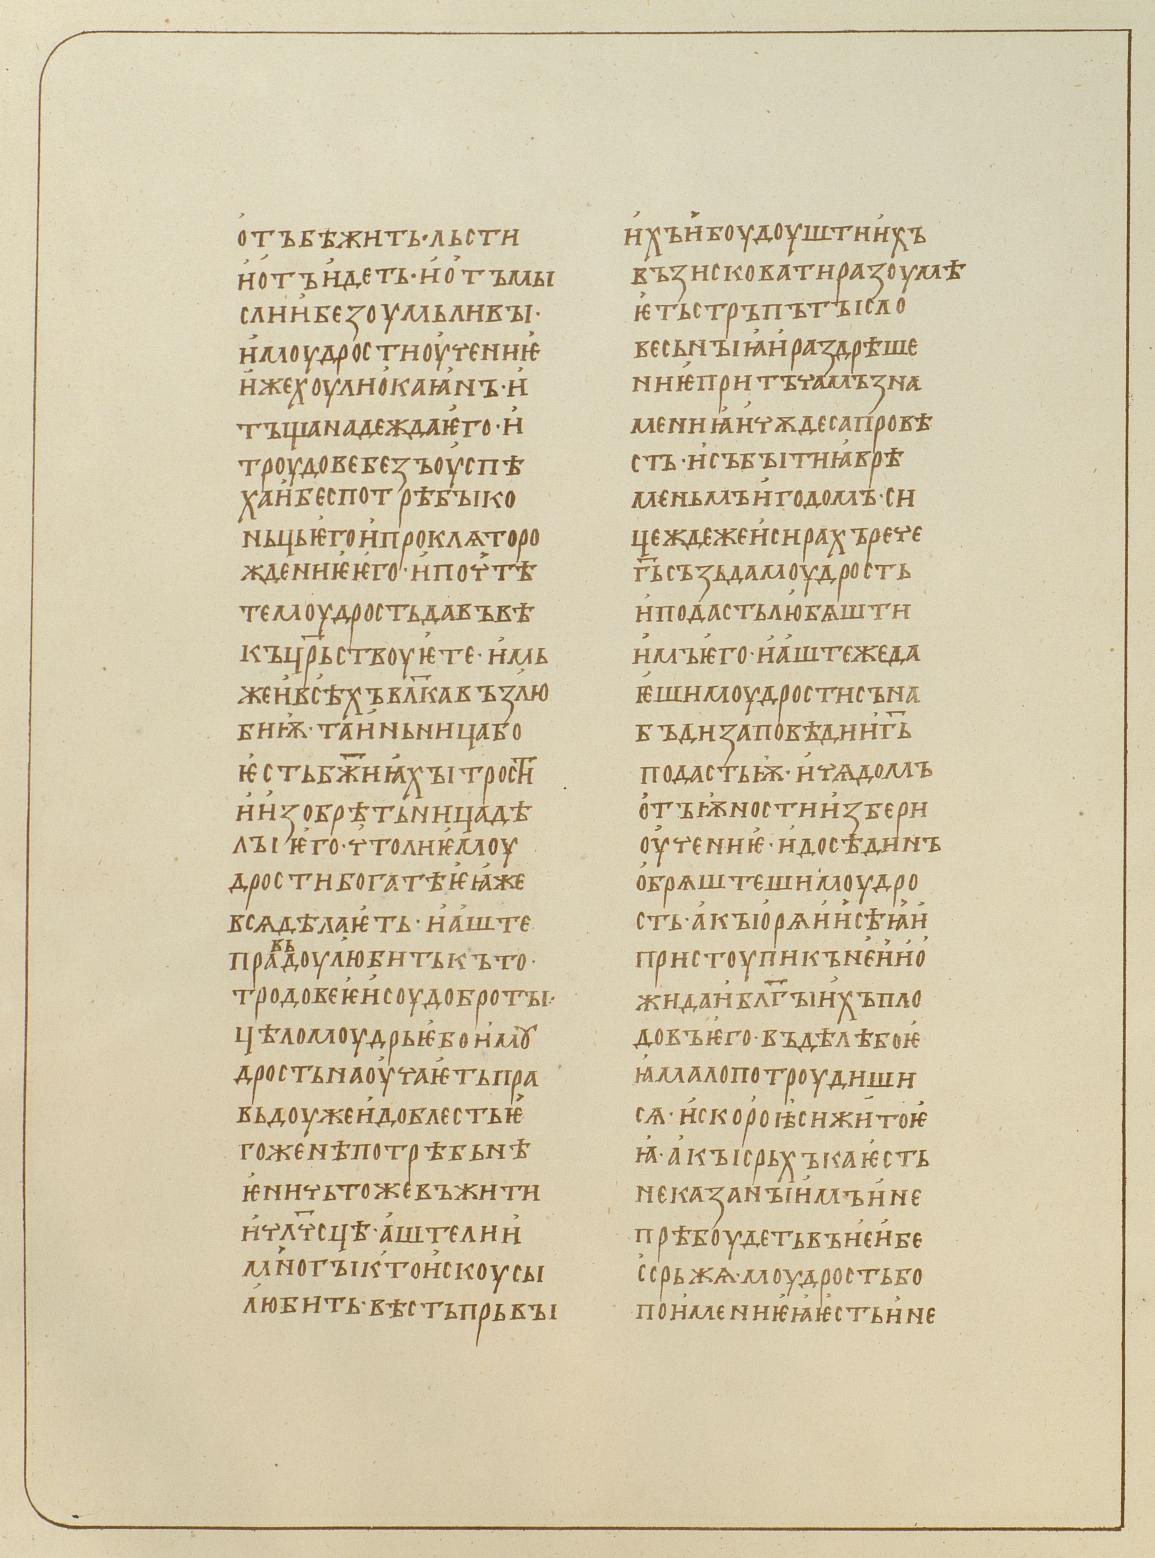 отъбѣжить·льсти
и отъидеть·и отъмы
слии безоумьливꙑ·
и моудрости оучениѥ
иже хоулно каꙗнъ·и
тъща надежда ѥго·и
троудове безъ оуспѣ
ха и беспотрѣбꙑ ко
ньць ѥго и проклѧто ро
ждениѥ ѥго·и почьтѣ
те моудрость да въ вѣ
къ цр҃ьствоуѥте·имь
же и всѣхъ вл҃ка възлю
би ѭ·таиньница бо
ѥсть бж҃иꙗ хꙑтрости
и изобрѣтьница дѣ
лꙑ ѥго·что ли ѥ моу
дрости богатѣѥ ꙗже
всꙗ дѣлаѥть·и аште
правьдоу любить къто·
тродове ѥѩ соу доброты·
цѣломоудрьѥ бо и мѹ
дрость наоучаѥть пра
вьдоу же и доблесть ѥ
гоже не потрѣбьнѣ
ѥ ничьтоже въ жити
и чл҃чсцѣ·аште ли и
многꙑ къто искоусы
любить·вѣсть прьвꙑ
ихъ и боудоуштиихъ
възисковати разоумѣ
ѥть стръпътꙑ сло
весьнꙑꙗ и раздрѣше
ниѥ притъчамъ зна
мениꙗ и чѫдеса провѣ
сть·и събꙑтиꙗ врѣ
меньмъ и годомъ·си
це жде же и сирахъ рече
г҃ь съзьда моудрость
и подасть любѧшти
имъ ѥго·и аште жеда
ѥши моудрости съна
бъди заповѣди и г҃ь
подасть ѭ·и чѧдомъ
отъ ѭности избери
оучениѥ·и до сѣдинъ
обрѧштеши моудро
сть·акꙑ орѧи и сѣꙗи
пристоупи къ неи и о
жидаи бл҃гꙑихъ пло
довъ ѥго·въ дѣлѣ бо ѥ
ѩ мало потроудиши
сѧ·и скоро ѣси жито ѥ
ѩ·акꙑ срьхъка ѥсть
не казанꙑимъ и не
прѣбоудеть въ неи бе
ссрьжѧ·моудрость бо
по имениѥ ѩ ѥсть и не